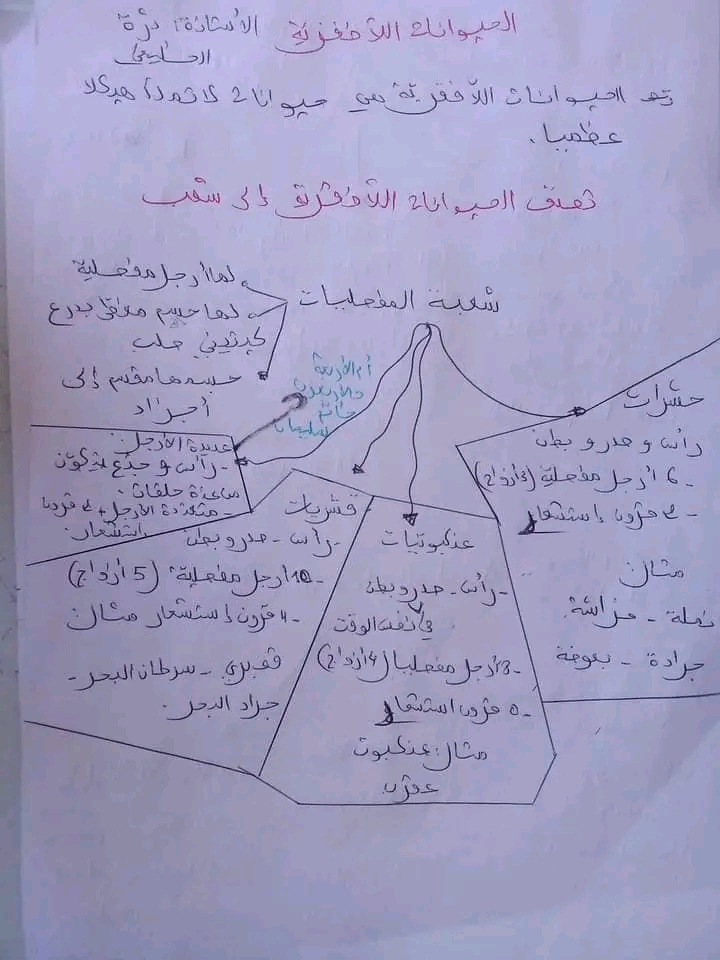 الحيوانات اللافقرية
الأستاذة: درة
تعد الحيوانات اللافقرية هي حيوانات لا تملك هيكلا
عظميا.
تصنف الحيوانات اللافقرية إلى شعب
شعبة المفصليات
لها أرجل مفصلية
لها جسم مغطى بدرع
كيتيني صلب
جسمها مقسم إلى
أجزاء
حشرات
رأس و صدر و بطن
- 6 أرجل مفصلية (3 أزواج)
- 2 قرون إستشعار
مثال
نملة - فراشة
جرادة - بعوضة
عنكبوتيات
- رأس - صدر و بطن
في نفس الوقت
- 8 أرجل مفصليا (4 أزواج)
- 0 قرون استشعار
مثال: عنكبوت
عقرب
قشريات
- رأس - صدر و بطن
- 10 أرجل مفصلية (5 أزواج)
- 4 قرون إستشعار مثال
قمبري - سرطان البحر -
جراد البحر.
عديدة الأرجل
- رأس و جذع متكون
من عدة حلقات
- متعددة الأرجل + 2 قرون
إستشعار.
أم الأربعة
والأربعون
خاتم
سليمان